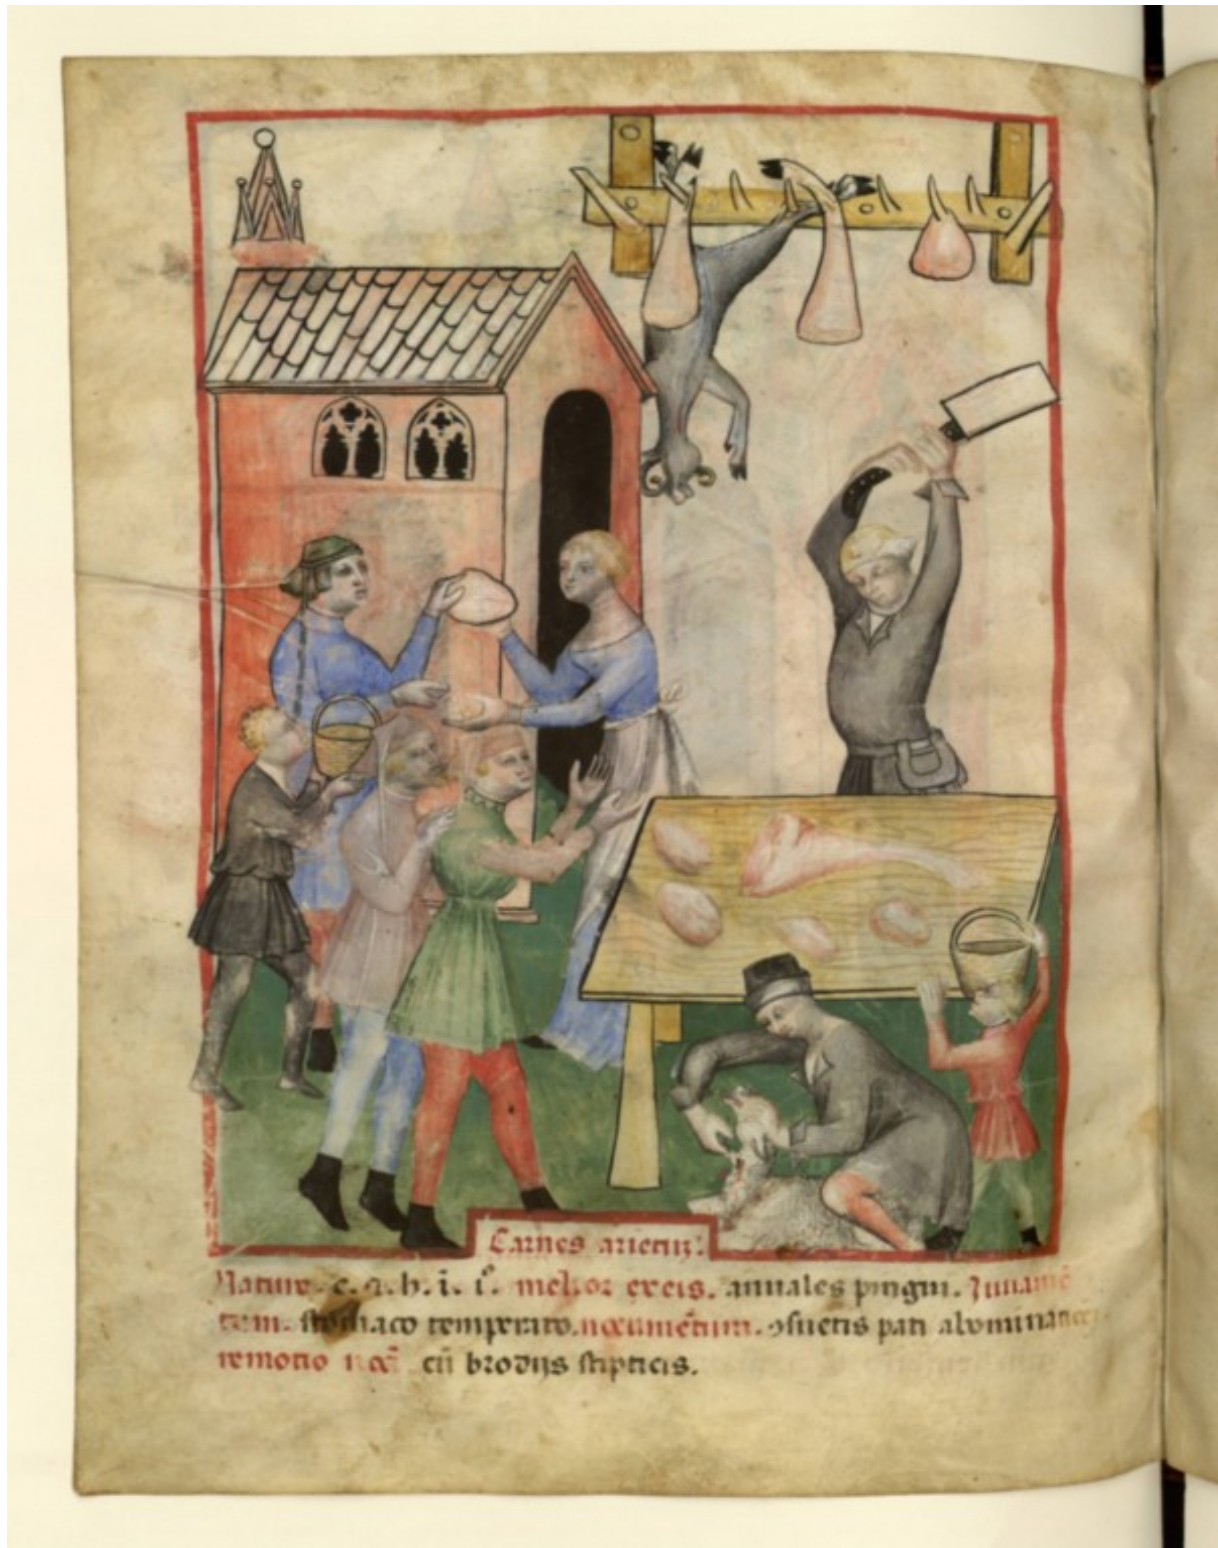 Carnes arietuz:
Nature. c. ⁊. h. i. i°. melior ex eis. annuales pingui. Iuuamē
tum. stomaco temperato. nocumētum. ꝯsuetis pati abominationez.
remotio noc̄i cū brodijs stipticis.